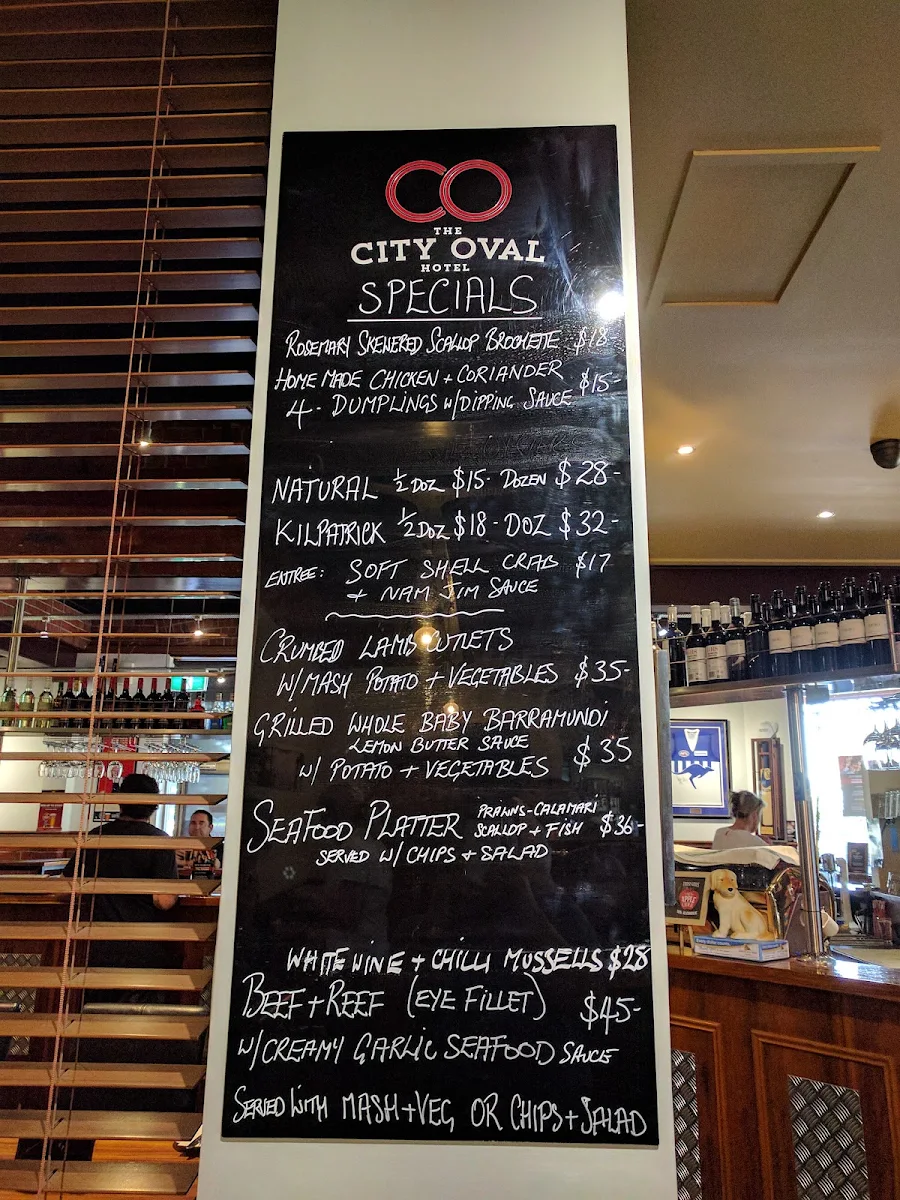 CO
THE
CITY OVAL
HOTEL
SPECIALS
ROSEMARY SKEWERED SCALLOP BROCHETTE $18-
HOME MADE CHICKEN + CORIANDER
4 - DUMPLINGS W/DIPPING SAUCE $15-
NATURAL 1/2 DOZ $15- DOZEN $28-
KILPATRICK 1/2 DOZ $18 - DOZ $32-
ENTREE: SOFT SHELL CRAB $17
+ NAM JIM SAUCE
CRUMBED LAMB CUTLETS
W/MASH POTATO + VEGETABLES $35-
GRILLED WHOLE BABY BARRAMUNDI
LEMON BUTTER SAUCE $35
W/ POTATO + VEGETABLES
SEAFOOD PLATTER PRAWNS-CALAMARI
SCALLOP + FISH $36-
SERVED W/ CHIPS + SALAD
WHITE WINE + CHILLI MUSSELLS $28
BEEF + REEF (EYE FILLET) $45-
W/CREAMY GARLIC SEAFOOD SAUCE
SERVED WITH MASH + VEG OR CHIPS + SALAD